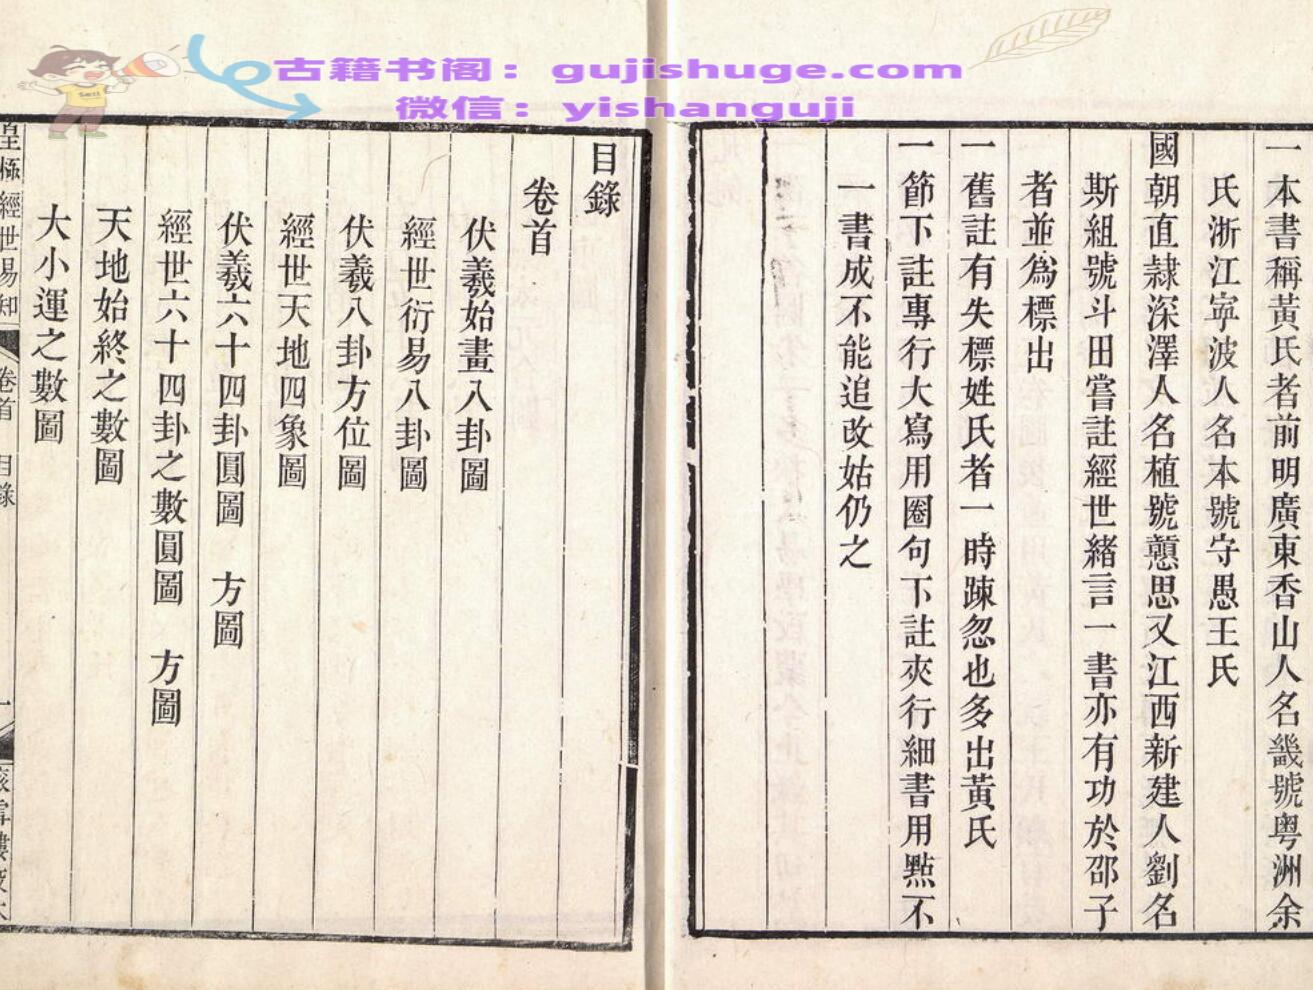 古籍书阁：gujishuge.com
微信：yishanguji
一本書稱黃氏者前明廣東香山人名畿號粤洲余
氏浙江寧波人名本號守愚王氏
國朝直隷深澤人名植號戇思又江西新建人劉名
斯組號斗田嘗註經世緒言一書亦有功於邵子
者並爲標出
一舊註有失標姓氏者一時踈忽也多出黃氏
一節下註專行大寫用圈句下註夾行細書用㸃不
一書成不能追改姑仍之
目錄
卷首
伏羲始畫八卦圖
經世衍易八卦圖
伏羲八卦方位圖
經世天地四象圖
伏羲六十四卦圓圖　方圖
經世六十四卦之數圓圖　方圖
天地始終之數圖
大小運之數圖
皇極經世易知　卷首　目錄　一